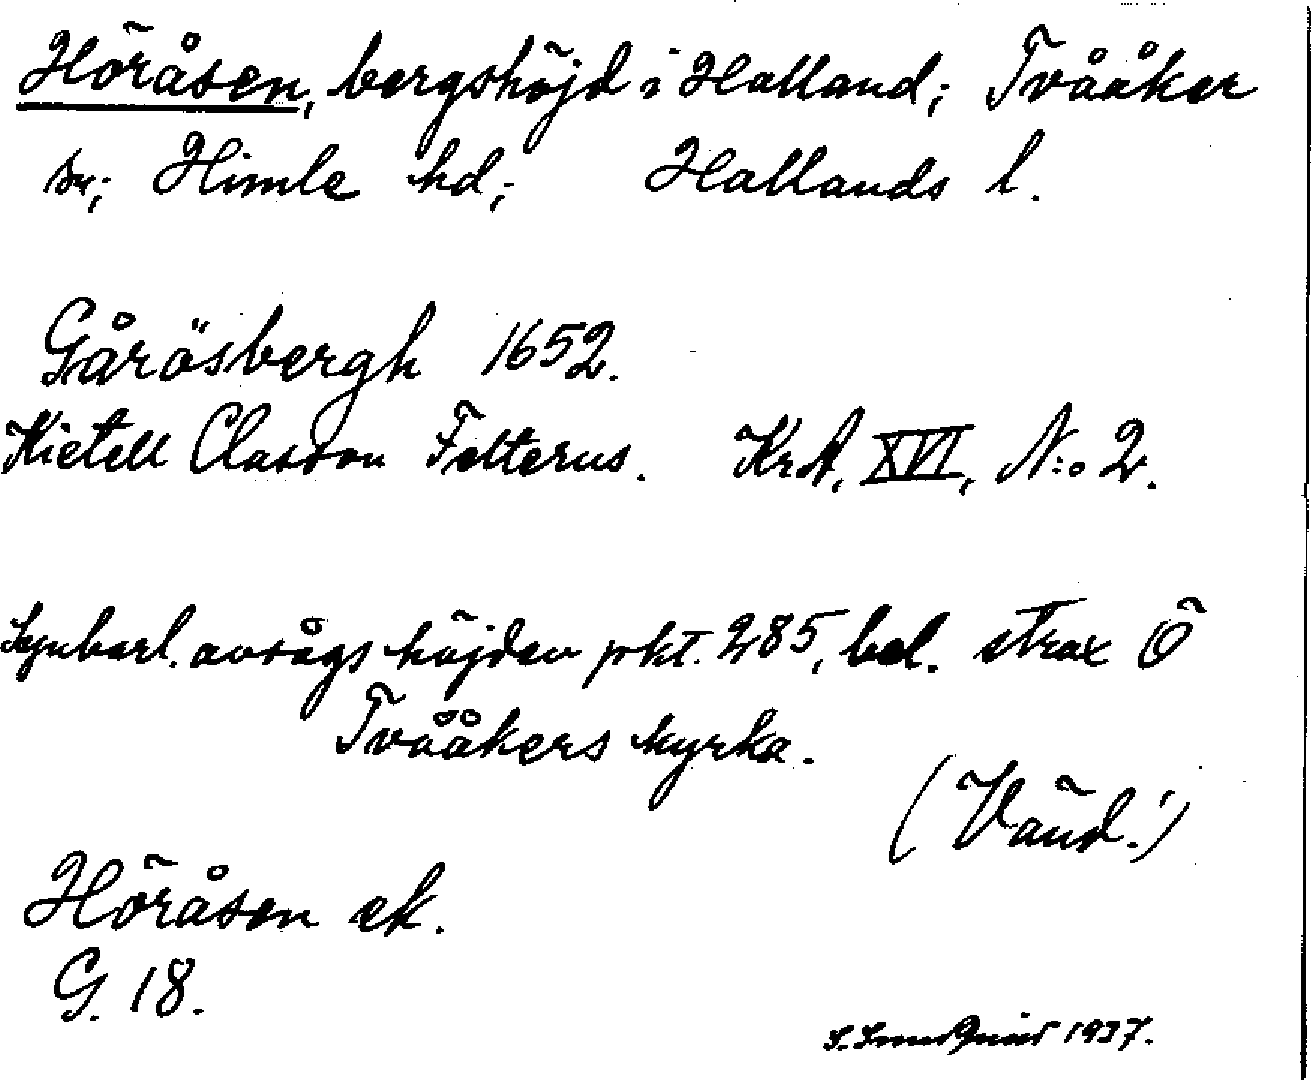 Höråsen, bergshöjd i Halland; Tvååker
sn; Himle hd; Hallands l.
Gårösbergh 1652.
Kietell Classon Felterus. KrA, XVI, N:o 2.
Synbarl. avsågs höjden pkt. 285, bel. strax Ö
Tvååkers kyrka.
(Vänd!)
Höråsen ek.
G. 18.
S. 1937.